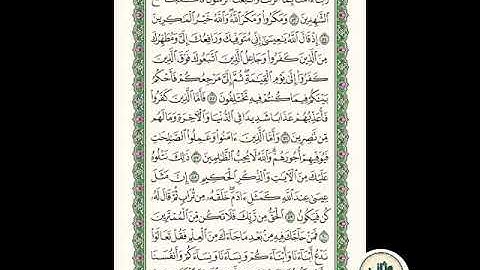 ربنا ءامنا بما أنزلت واتبعنا الرسول فاكتبنا مع
الشهدين ٥٣ ومكروا ومكر الله والله خير المكرين ٥٤
إذ قال الله يعيسى إني متوفيك ورافعك إلي ومطهرك
من الذين كفروا وجاعل الذين اتبعوك فوق الذين
كفروا إلى يوم القيمة ثم إلي مرجعكم فأحكم
بينكم فيما كنتم فيه تختلفون ٥٥ فأما الذين كفروا
فأعذبهم عذابا شديدا في الدنيا والأخرة وما لهم
من نصرين ٥٦ وأما الذين ءامنوا وعملوا الصلحت
فيوفيهم أجورهم والله لا يحب الظلمين ٥٧ ذلك نتلوه
عليك من الأيت والذكر الحكيم ٥٨ إن مثل
عيسى عند الله كمثل ءادم خلقه من تراب ثم قال له
كن فيكون ٥٩ الحق من ربك فلا تكن من الممترين
٦٠ فمن حاجك فيه من بعد ما جاءك من العلم فقل تعالوا
ندع أبناءنا وأبناءكم ونساءنا ونساءكم وأنفسنا